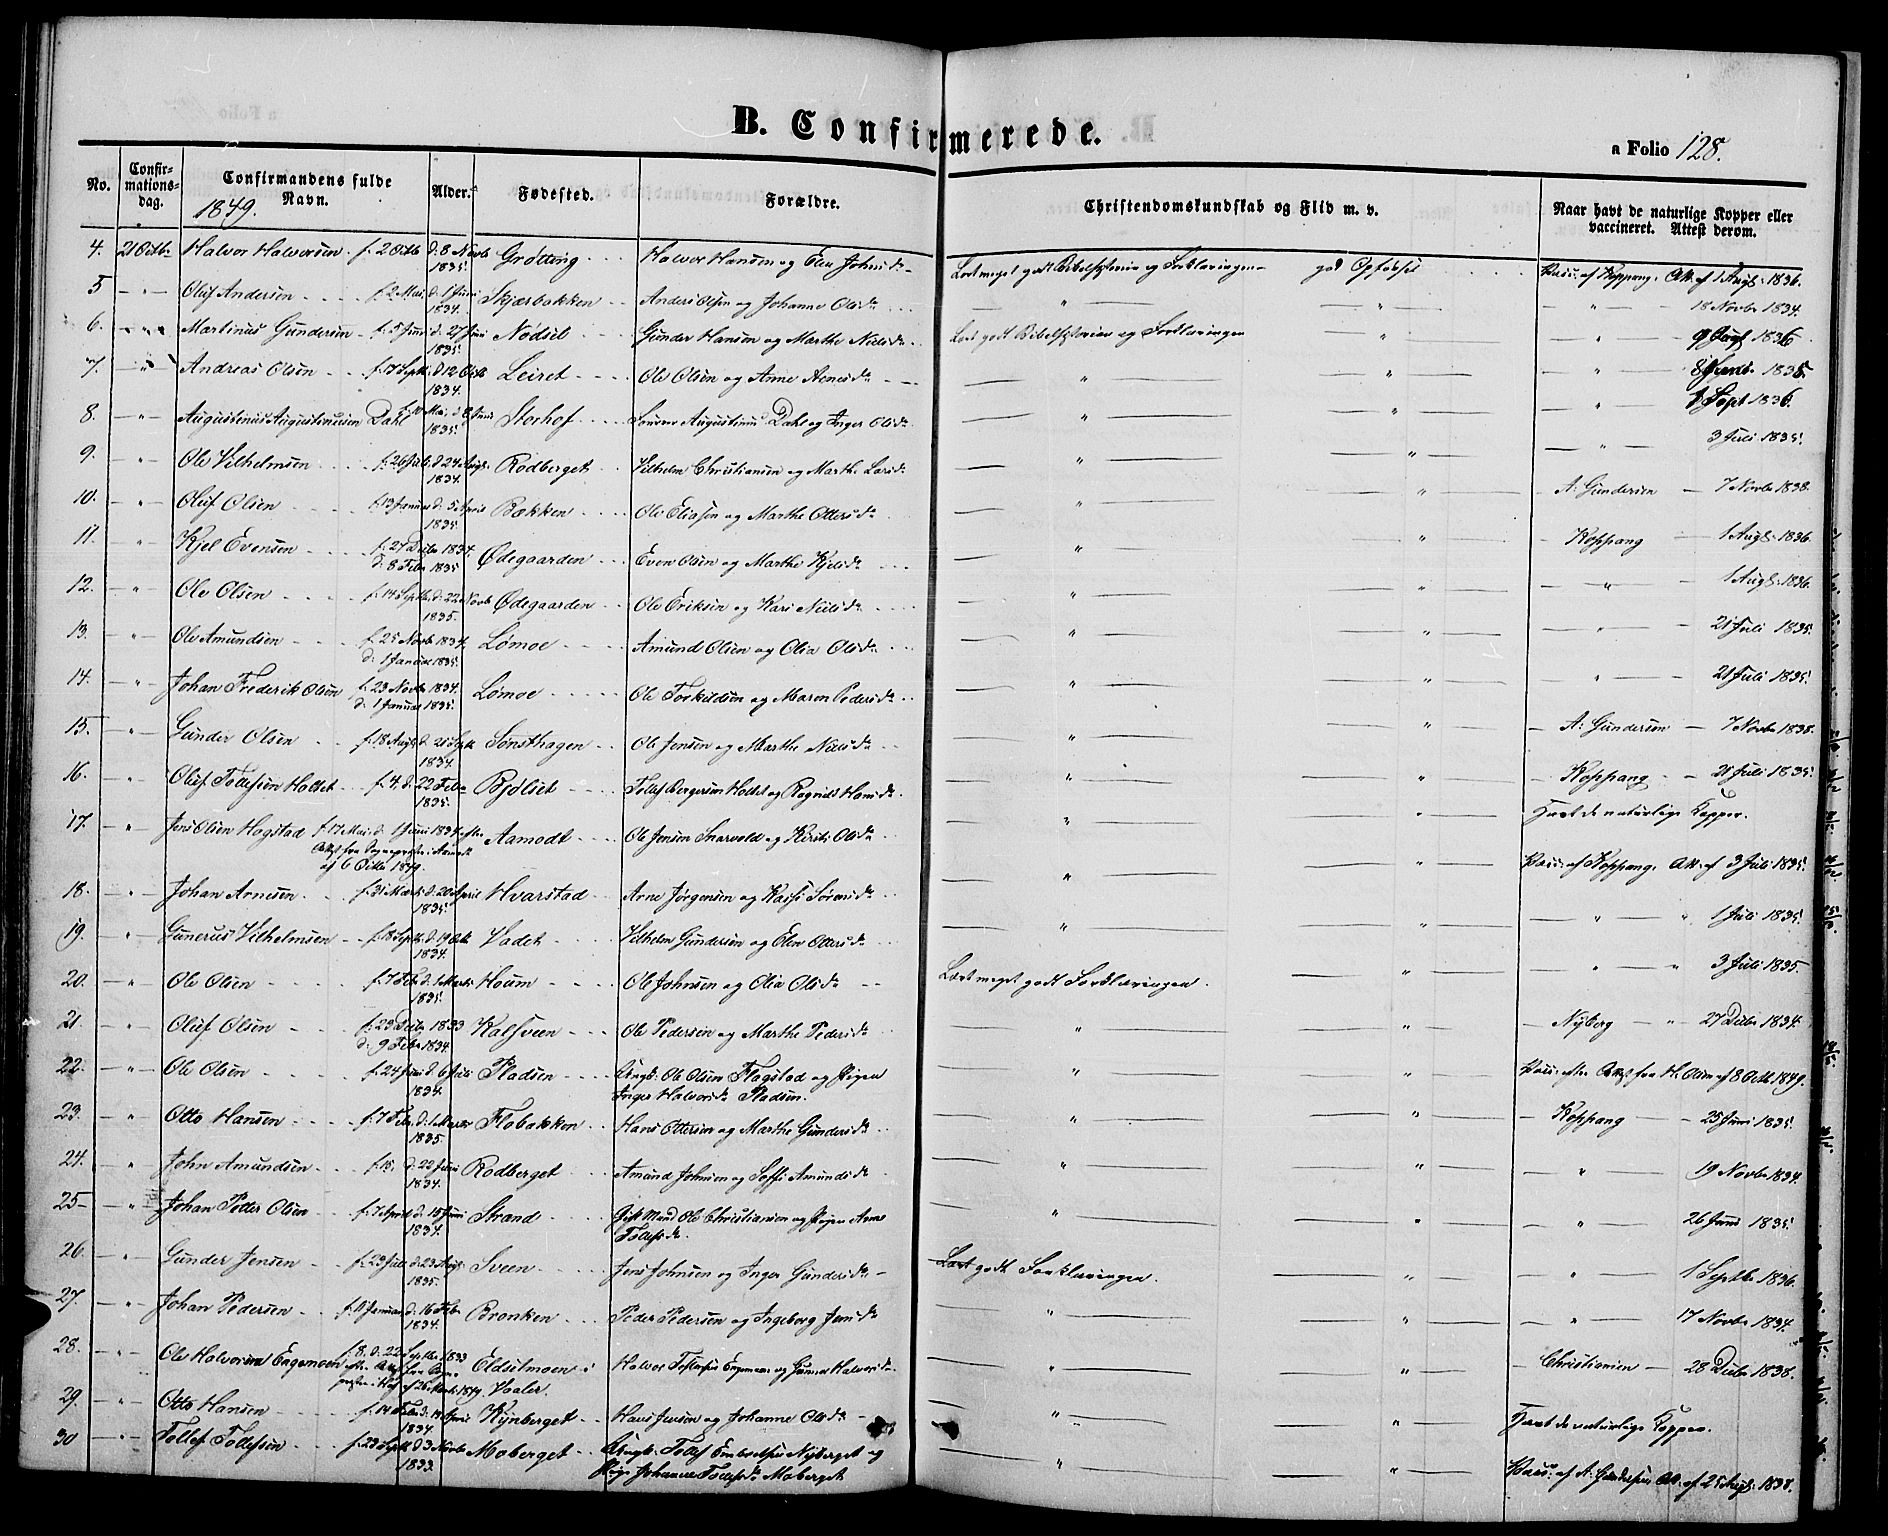 B. Confirmerede.
a Folio 128.
No. Confirmations-dag. Confirmandens fulde Navn. Alder. Fødested. Forældre. Christendomskundskab og Flid m. v. Naar havt de naturlige Kopper eller vaccineret. Attest derom.
1849.
4. 21 Octbr Halvor Halvorsen f. 2 Octb d. 8 Novb 1835. Grøtting Halvor Hansen og Eli Johnsdr Læst meget godt Bibelhistorie og Forklaringen god Opførsel Vacc. af Koppang. Att. af 1 Augs. 1836.
5 " Oluf Andersen f. 2 Mai d. 1 Juni 1834. Skjærbakken Anders Olsen og Johanne Olsdr " " " 18 Novbr 1834.
6. " Martinus Gundersen f. 5 Juni d. 27 Juni 1835. Nødset Gunder Hansen og Marthe Nielsdr Læst godt Bibelhistorie og Forklaringen " " 1836
7. " Andreas Olsen f. 17 Septb. d. 12 Octb 1834. Leiret Ole Olsen og Anne Arnesdr " " " 1835.
8. " Augustinus Augustinusen Dahl Mai, d. 8 Juni 1835. Storhof Augustinus Dahl og Inger Olsdr " " " Sept 1836.
9. " Ole Vilhelmsen f. 26 Juli d. 24 Augs. 1834. Rødberget Vilhelm Christiansen og Marthe Larsdr " " " 3 Juli 1835.
10. " Oluf Olsen f. 13 Januar d. 5 April 1835. Bækken Ole Eliasen og Marthe Ottersdr " " A. Gundersen 7 Novbr 1838.
11. " Kjel Evensen f. 27 Decbr 1834. d. 8 Febr 1835 Ødegaarden Even Olsen og Marthe Kjelsdr " " Koppang 1 Augs. 1836.
12. " Ole Olsen f. 14 Septb. d. 22 Novb 1835. Ødegaarden Ole Eriksen og Kari Nielsdr " " " 1 Augs. 1836.
13. " Ole Amundsen f. 25 Novbr 1834. d. 1 Januar 1835. Lømoe Amund Olsen og Olia Olsdr " " " 21 Juli 1835.
14. " Johan Frederik Olsen f. 23 Novbr 1834. d. 1 Januar 1835. Lømoe Ole Torkildsen og Maren Pedersdr " " " 21 Juli 1835.
15. " Gunder Olsen f. 18 Augs. d. 21 Septb 1834. Sønsthagen Ole Jensen og Marthe Nielsdr " " A. Gundersen 7 Novbr 1838.
16. " Oluf Tollefsen Holtet f. 4. d. 22 Febr 1835. Bjølset Tollef Bergersen Holtet og Ragnild Hansdr " " Koppang 21 Juli 1835.
17. " Jens Olsen Hogstad f. 17 Mai d. 1 Juni 1834 efter Attest fra Sognepresten i Aamodt af 6 Octbr 1849. Aamodt Ole Jensen Snarvold og Kersti Olsdr " " Havt de naturlige Kopper.
18. " Johan Arnesen f. 31 Marts d. 20 April 1835. Hvarstad Arne Jørgensen og Kaisi Sørensdr " " Vacc. af Koppang. Att. af 3 Juli 1835.
19. " Gunerus Vilhelmsen f. 18 Septb. d. 19 Octb 1834. Vadet Vilhelm Gundersen og Elen Ottersdr " " " " 1 Juli 1835.
20. " Ole Olsen f. 7 Feb. d. 1 Marts 1835. Houm Ole Johnsen og Olia Olsdr Læst meget godt Forklaringen. " " " 3 Juli 1835.
21. " Oluf Olsen f. 23 Decbr 1833 d. 9 Febr 1834. Kalfveen Ole Pedersen og Marthe Pedersdr " " Nyborg " 27 Decbr 1834.
22. " Ole Olsen f. 24 Juni d. 6 Juli 1834. Pladsen Ungk. Ole Olsen Flagstad og Pigen Inger Halvorsdr Pladsen. " " Vacc. efter Attest fra H. Olsen af 8 Octb 1849.
23. " Otto Hansen f. 7 Feb. d. 1 Marts 1835. Flobakken Hans Ottersen og Marthe Gundersdr " " Koppang 25 Juni 1835.
24. " John Amundsen f. 15. d. 22 Juni 1834. Rødberget Amund Johnsen og Soffi Amundsdr " " " 19 Novbr 1834.
25 " Johan Petter Olsen f. 7 April d. 15 Juni 1834. Strand Gift Mand Ole Christiansen og Pigen Anne Tollefsdr. " " " 26 Juni 1835.
26. " Gunder Jensen f. 23 Juli d. 23 Augs. 1835. Sveen Jens Johnsen og Inger Gundersdr Læst godt Forklaringen. " " 1 Septbr 1836.
27. " Johan Pedersen f. 11 Januar d. 16 Feb. 1834. Bronken Peder Pedersen og Ingeborg Jensdr " " " 17 Novbr 1834.
28. " Ole Halvorsen Engemoen f. 8. d. 22 Septbr 1833 efter Attest fra Sogne-presten i Hof af 26 Marts 1849. Eldsetmoen i Vaaler. Halvor Engemoen og Gunnor Halvorsdr " " Christiansen 28 Decbr 1838.
29. " Otto Hansen f. 14 Feb. d. April 1834. Kynberget Hans Jensen og Johanne Olsdr " " Havt de naturlige Kopper.
30 " Tollef Tollefsen f. 23 Septb d. 3 Novbr 1833. Moberget Ungk. Tollef Embretsen Nyberget og Pige Johanne Tollefsdr Moberget " " Vacc. af A. Gundersen Att. af 25 Augs. 1838.